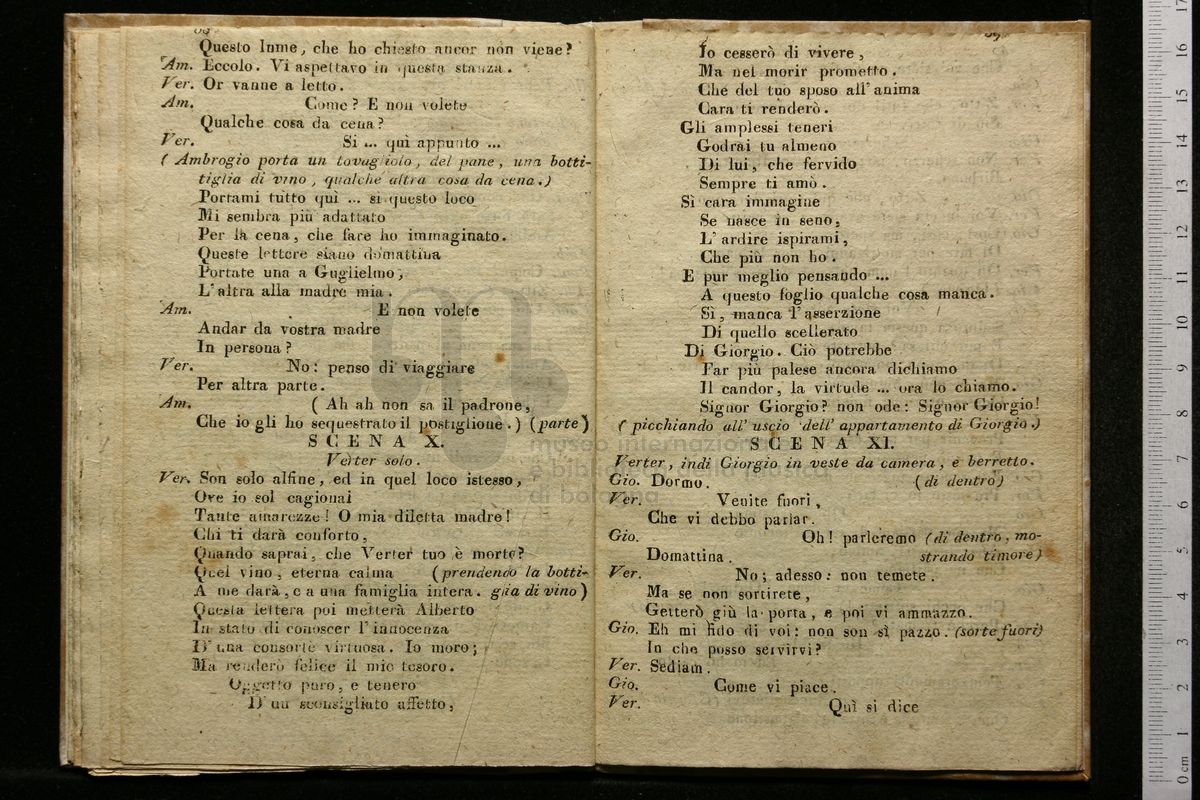 Questo lume, che ho chiesto ancor non viene?
Am. Eccolo. Vi aspettavo in questa stanza.
Ver. Or vanne a letto.
Am. Come? E non volete
Qualche cosa da cena?
Ver. Si ... quì appunto ...
( Ambrogio porta un tovagliolo, del pane, una botti-
tiglia di vino, qualche altra cosa da cena.)
Portami tutto quì ... si questo loco
Mi sembra più adattato
Per la cena, che fare ho immaginato.
Queste lettere siano domattina
Portate una a Guglielmo,
L'altra alla madre mia.
Am. E non volete
Andar da vostra madre
In persona?
Ver. No: penso di viaggiare
Per altra parte.
Am. ( Ah ah non sa il padrone,
Che io gli ho sequestrato il postiglione.) (parte)
SCENA X.
Verter solo.
Ver. Son solo alfine, ed in quel loco istesso,
Ove io sol cagionai
Tante amarezze! O mia diletta madre!
Chi ti darà conforto,
Quando saprai, che Verter tuo è morto?
Quel vino, eterna calma (prendendo la botti-
A me darà, e a una famiglia intera. glia di vino)
Questa lettera poi metterà Alberto
In stato di conoscer l'innocenza
D'una consorte virtuosa. Io moro;
Ma renderò felice il mio tesoro.
Oggetto puro, e tenero
D'un sconsigliato affetto,
Io cesserò di vivere,
Ma nel morir prometto.
Che del tuo sposo all'anima
Cara ti renderò.
Gli amplessi teneri
Godrai tu almeno
Di lui, che fervido
Sempre ti amò.
Sì cara immagine
Se nasce in seno,
L'ardire ispirami,
Che più non ho.
E pur meglio pensando ...
A questo foglio qualche cosa manca.
Sì, manca l'asserzione
Di quello scellerato
Di Giorgio. Ciò potrebbe
Far più palese ancora dichiamo
Il candor, la virtude ... ora lo chiamo.
Signor Giorgio? non ode: Signor Giorgio!
( picchiando all'uscio dell'appartamento di Giorgio.)
SCENA XI.
Verter, indi Giorgio in veste da camera, e berretto.
Gio. Dormo. (di dentro)
Ver. Venite fuori,
Che vi debbo parlar.
Gio. Oh! parleremo (di dentro, mo-
Domattina. strando timore)
Ver. No; adesso: non temete.
Ma se non sortirete,
Getterò giù la porta, e poi vi ammazzo.
Gio. Eh mi fido di voi: non son sì pazzo. (sorte fuori)
In che posso servirvi?
Ver. Sediam.
Gio. Come vi piace.
Ver. Quì si dice
museo internazionale
e biblioteca della musica
di bologna
0 cm 1 2 3 4 5 6 7 8 9 10 11 12 13 14 15 16 17